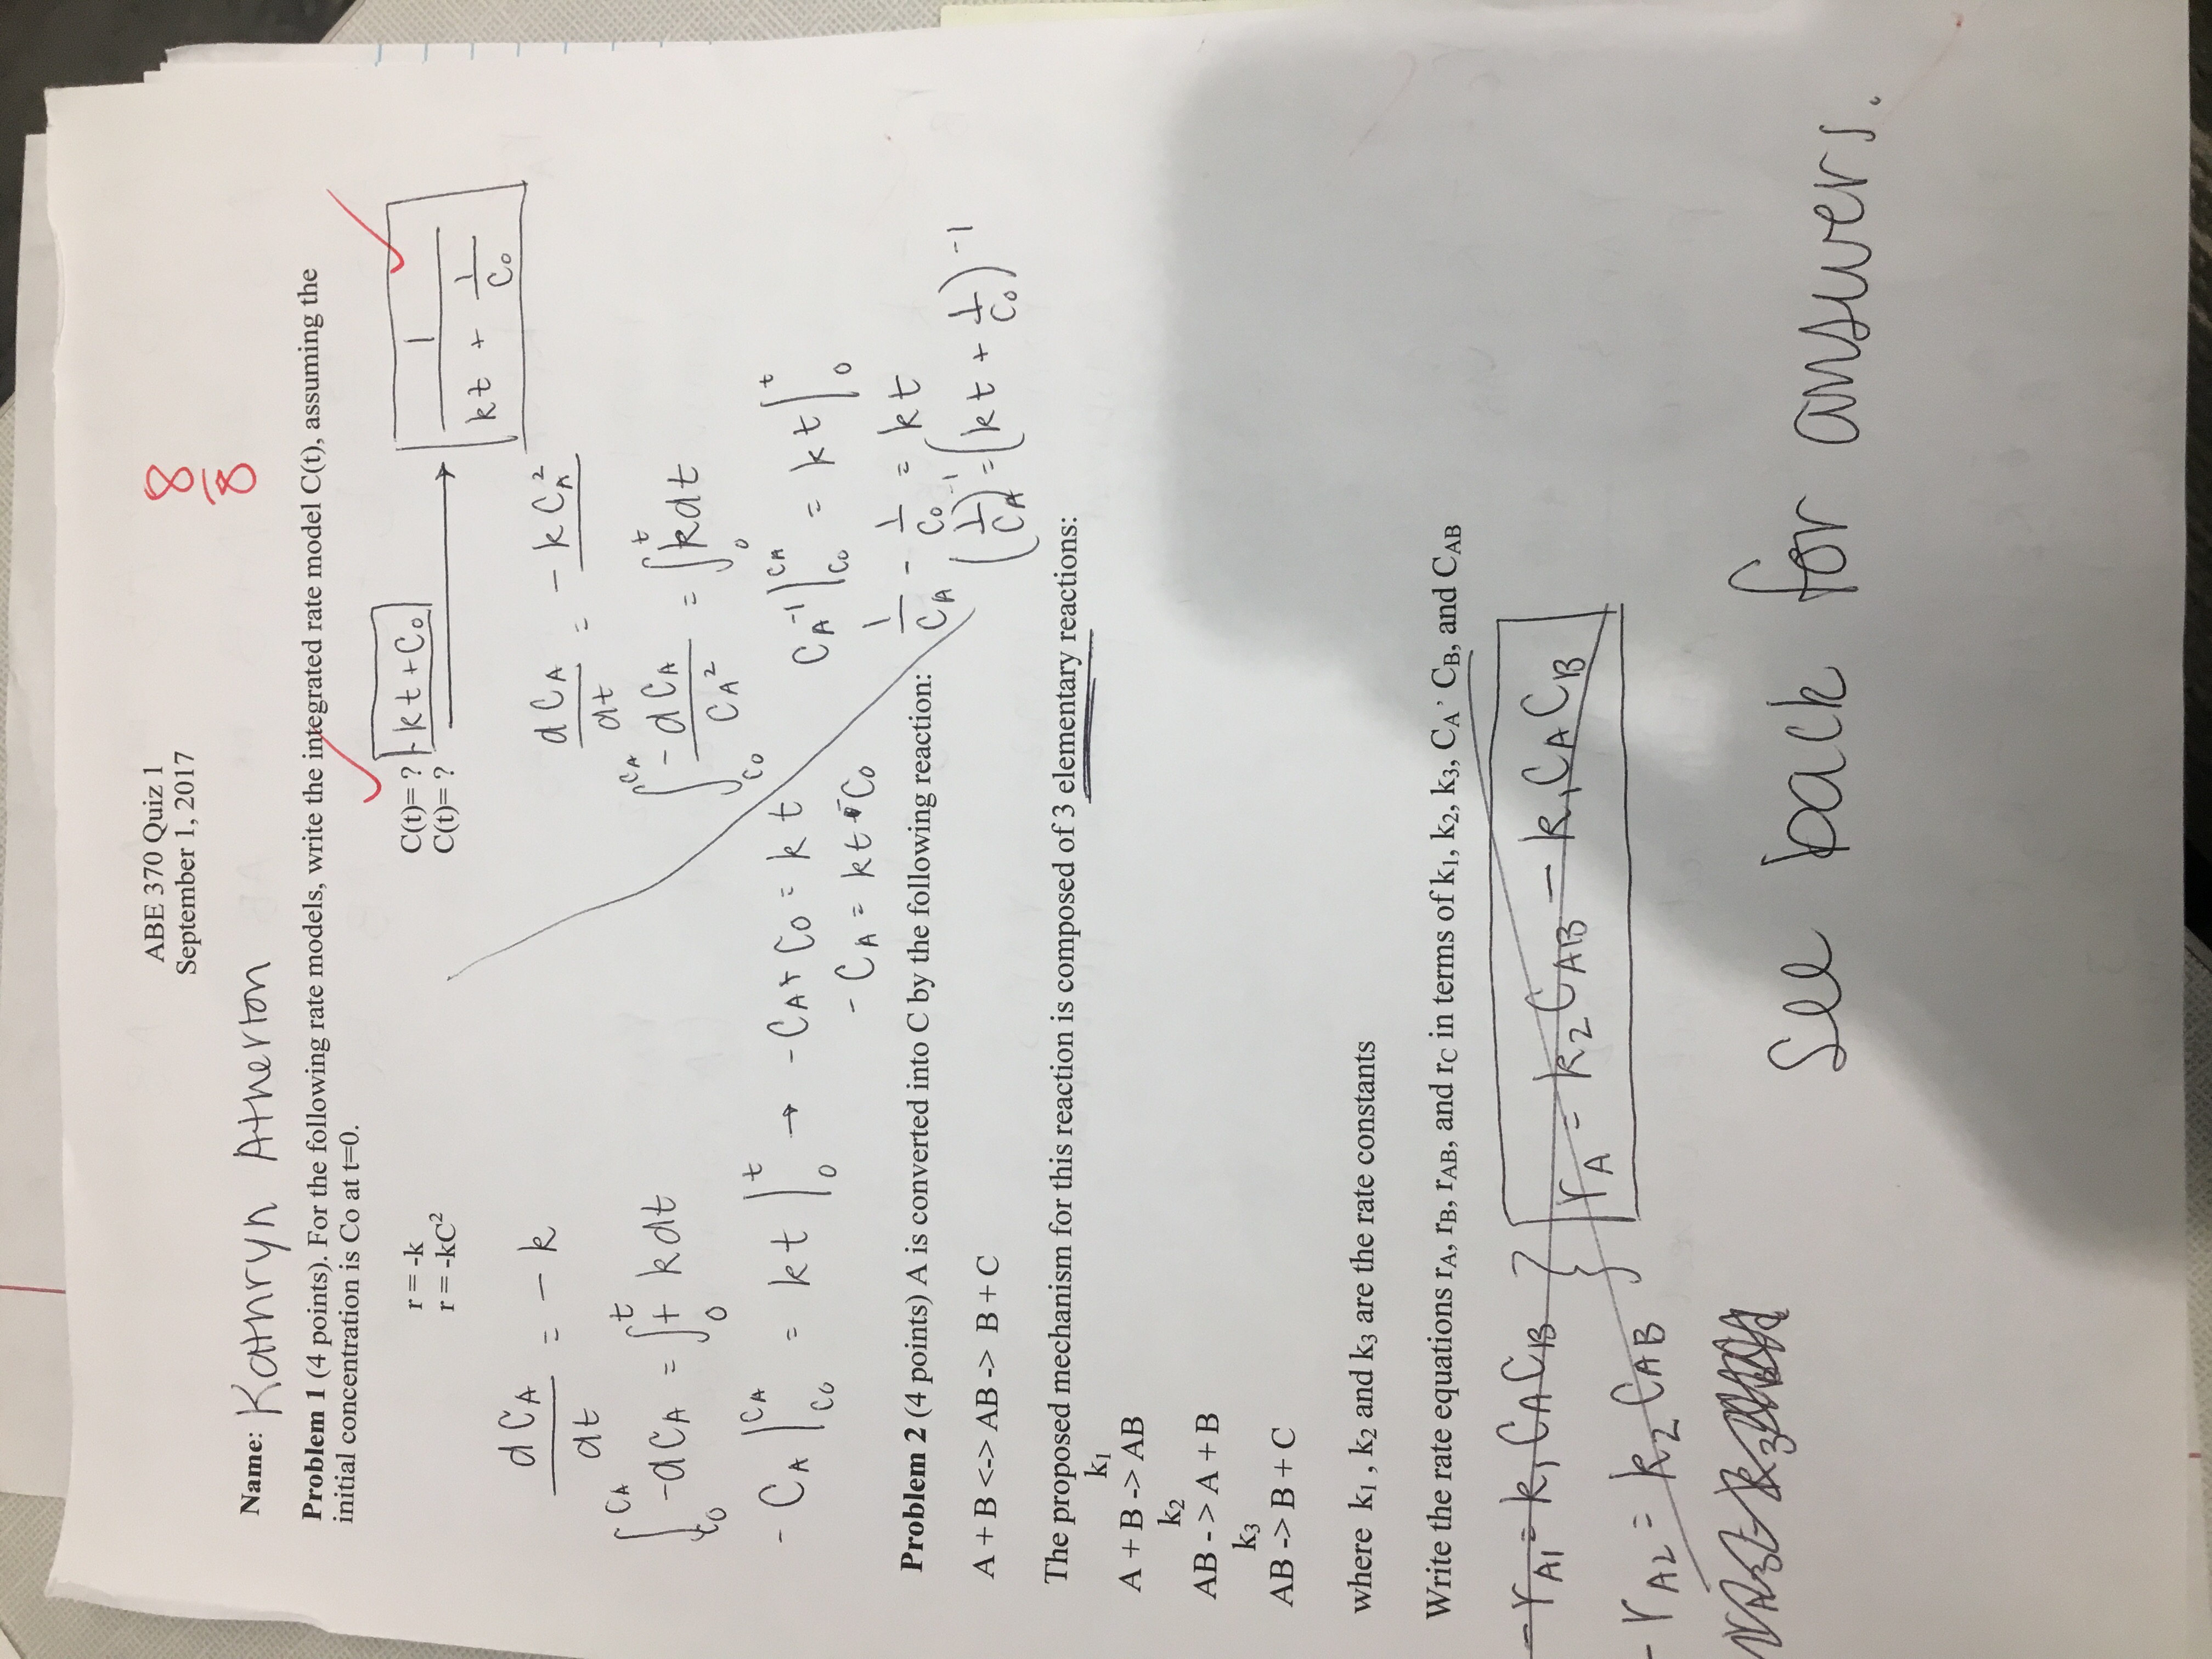 ABE 370 Quiz 1
September 1, 2017
8/8
Name: Kathryn Atherton
Problem 1 (4 points). For the following rate models, write the integrated rate model C(t), assuming the
initial concentration is Co at t=0.
r = -k
C(t)= ? -kt + C₀
r = -kC²
C(t)= ? → 1/(kt + 1/C₀)
dC_A/dt = -k
∫_{C₀}^{C_A} -dC_A = ∫_0^t + kdt
-C_A |_{C₀}^{C_A} = kt |_0^t → -C_A + C₀ = kt
-C_A = kt - C₀
dC_A/dt = -kC_A²
∫_{C₀}^{C_A} -dC_A/C_A² = ∫_0^t kdt
C_A⁻¹ |_{C₀}^{C_A} = kt |_0^t
1/C_A - 1/C₀ = kt
(1/C_A)⁻¹ = (kt + 1/C₀)⁻¹
Problem 2 (4 points) A is converted into C by the following reaction:
A + B <-> AB -> B + C
The proposed mechanism for this reaction is composed of 3 elementary reactions:
k₁
A + B -> AB
k₂
AB - > A + B
k₃
AB -> B + C
where k₁ , k₂ and k₃ are the rate constants
Write the rate equations r_A, r_B, r_AB, and r_C in terms of k₁, k₂, k₃, C_A , C_B, and C_AB
-r_A1 = k₁C_AC_B
r_A = k₂C_AB - k₁C_AC_B
-r_A2 = k₂C_AB
See back for answers.